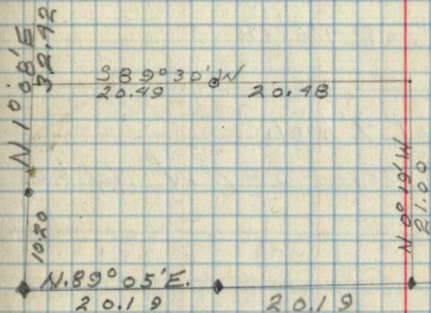 N 1° 08' E
32.42
S 89° 30' W
20.49
20.48
N 0° 19' W
21.00
1020
N. 89° 05' E.
20.19
20.19